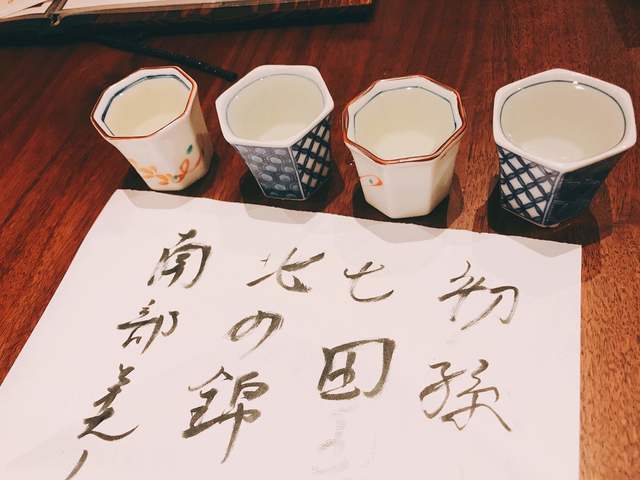 初孫
七田
北の錦
南部美